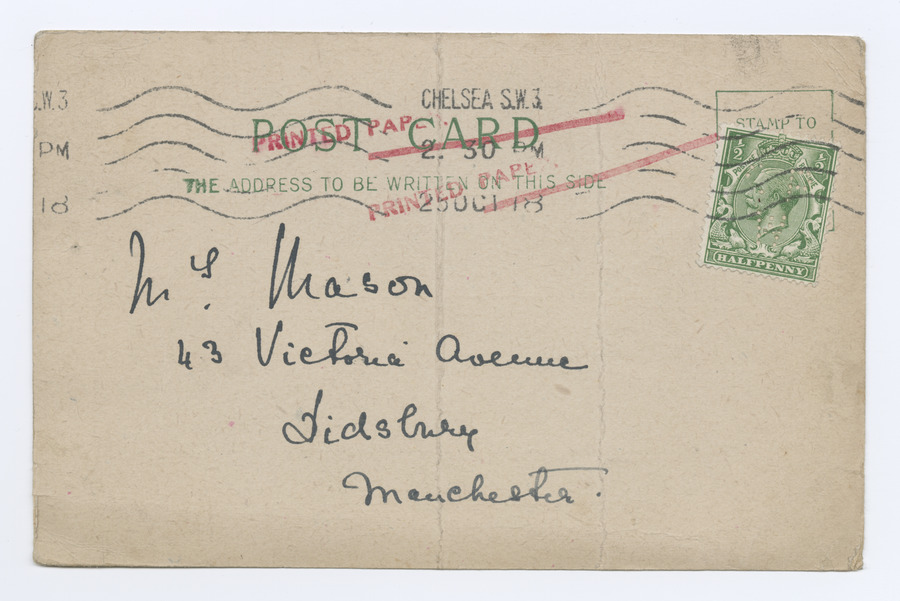 .W.3 CHELSEA S.W.3
POST CARD STAMP TO
PRINTED PAPE
PM 2. 30 PM
THE ADDRESS TO BE WRITTEN ON THIS SIDE
PRINTED PAPE
18 25 OCT 18
½ ½
HALFPENNY
Mrs. Mason
43 Victoria Avenue
Didsbury
Manchester.